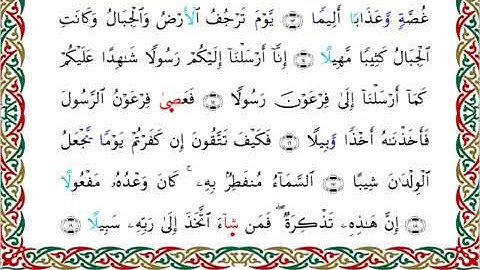 غُصَّةٍ وَعَذَابًا أَلِيمًا ۝١٣ يَوْمَ تَرْجُفُ ٱلْأَرْضُ وَٱلْجِبَالُ وَكَانَتِ
ٱلْجِبَالُ كَثِيبًا مَّهِيلًا ۝١٤ إِنَّآ أَرْسَلْنَآ إِلَيْكُمْ رَسُولًا شَٰهِدًا عَلَيْكُمْ
كَمَآ أَرْسَلْنَآ إِلَىٰ فِرْعَوْنَ رَسُولًا ۝١٥ فَعَصَىٰ فِرْعَوْنُ ٱلرَّسُولَ
فَأَخَذْنَٰهُ أَخْذًا وَبِيلًا ۝١٦ فَكَيْفَ تَتَّقُونَ إِن كَفَرْتُمْ يَوْمًا يَجْعَلُ
ٱلْوِلْدَٰنَ شِيبًا ۝١٧ ٱلسَّمَآءُ مُنفَطِرٌۢ بِهِۦ ۚ كَانَ وَعْدُهُۥ مَفْعُولًا
۝١٨ إِنَّ هَٰذِهِۦ تَذْكِرَةٌ ۖ فَمَن شَآءَ ٱتَّخَذَ إِلَىٰ رَبِّهِۦ سَبِيلًا ۝١٩